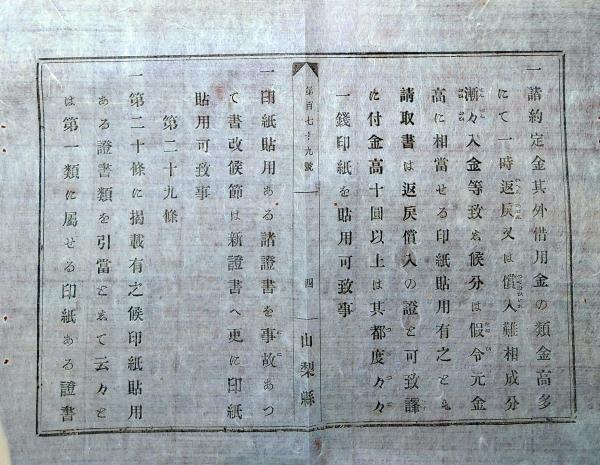 一諸約定金其外借用金の類金高多
にて一時返戻又は償入難相成分
漸々入金等致し候分は假令元金
高に相當せる印紙貼用有之とも
請取書は返戻償入の證と可致譯
に付金高十圓以上は其都度々々
一錢印紙を貼用可致事
第百七十九號
四
山梨縣
一印紙貼用ある諸證書を事故あつ
て書改候節は新證書へ更に印紙
貼用可致事
第二十九條
一第二十條に掲載有之候印紙貼用
ある證書類を引當として云々と
は第一類に屬せる印紙ある證書